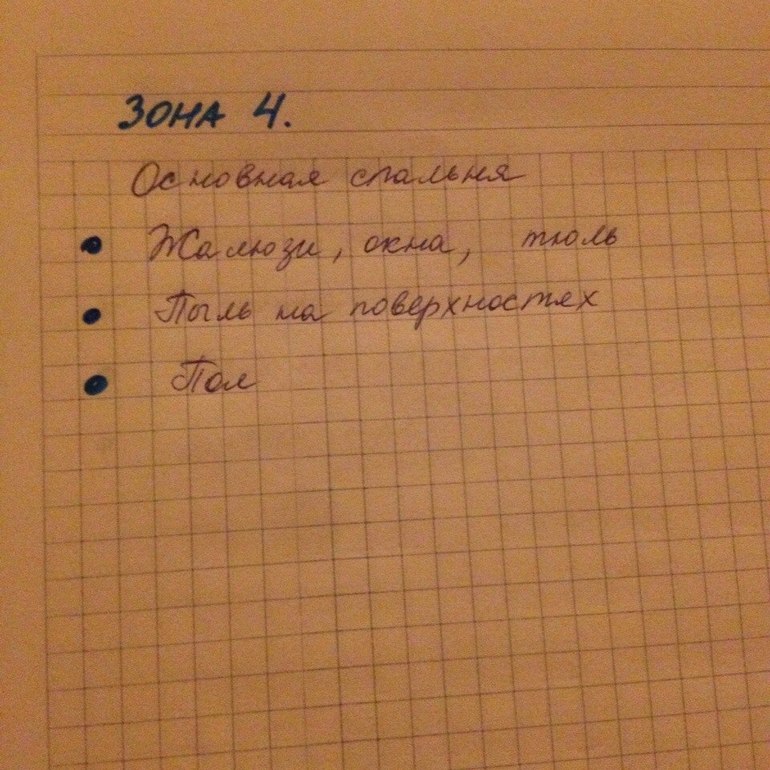 Зона 4.
Основная спальня
• Жалюзи, окна, тюль
• Пыль на поверхностях
• Пол